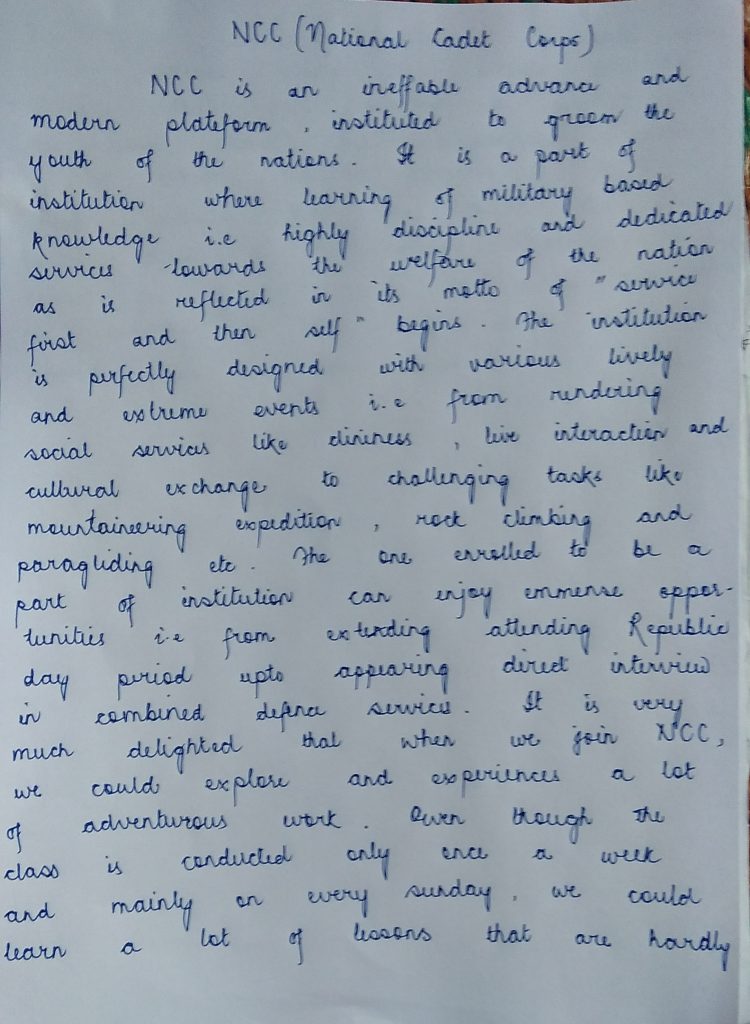 NCC (National Cadet Corps)
NCC is an ineffable advance and
modern plateform, instituted to groom the
youth of the nations. It is a part of
institution where learning of military based
knowledge i.e highly discipline and dedicated
services towards the welfare of the nation
as is reflected in its motto of "service
first and then self" begins. The institution
is perfectly designed with various lively
and extreme events i.e from rendering
social services like clininess, live interaction and
cultural exchange to challenging tasks like
mountaineering expedition, rock climbing and
paragliding etc. The one enrolled to be a
part of institution can enjoy emmense oppor-
tunities i.e from extending attending Republic
day period upto appearing direct interview
in combined defence services. It is very
much delighted that when we join NCC,
we could explore and experiences a lot
of adventurous work. Even though the
class is conducted only once a week
and mainly on every sunday, we could
learn a lot of lessons that are hardly